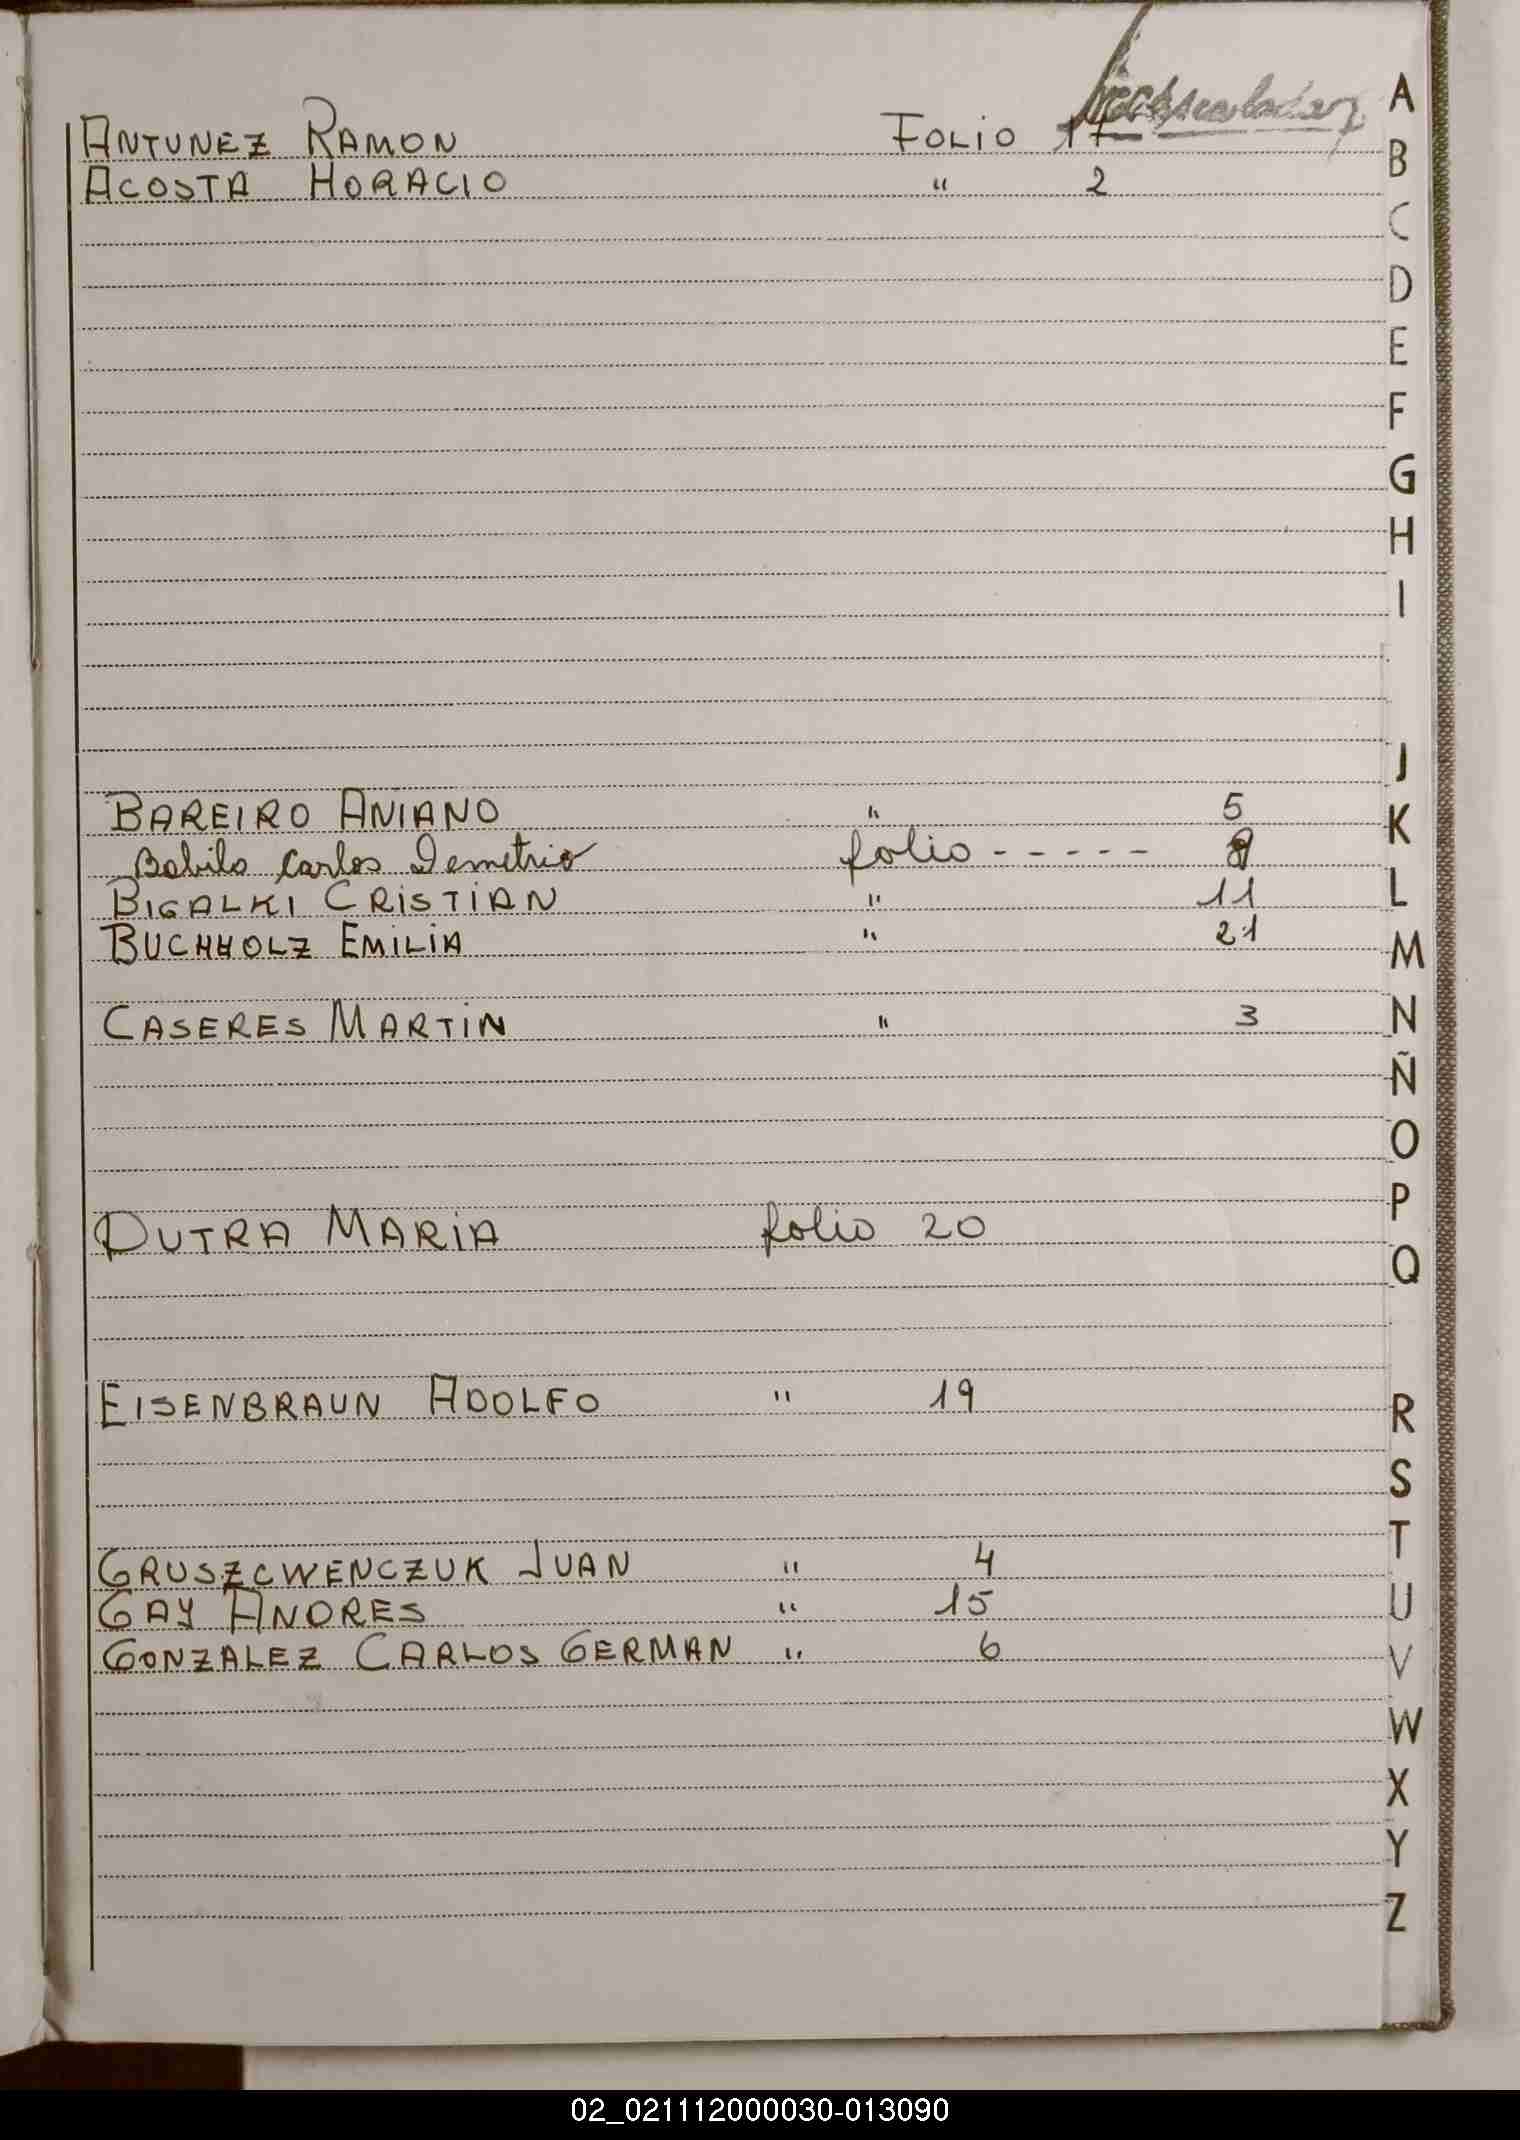 ANTUNEZ RAMON FOLIO 17
ACOSTA HORACIO " 2
BAREIRO ANIANO " 5
Bobilo Carlos Demetrio folio - - - - -
BIGALKI CRISTIAN " 11
BUCHHOLZ EMILIA " 21
CASERES MARTIN " 3
DUTRA MARIA folio 20
EISENBRAUN ADOLFO " 19
GRUSZCWENCZUK JUAN " 4
GAY ANDRES " 15
GONZALEZ CARLOS GERMAN " 6
A
B
C
D
E
F
G
H
I
J
K
L
M
N
Ñ
O
P
Q
R
S
T
U
V
W
X
Y
Z
02_021112000030-013090